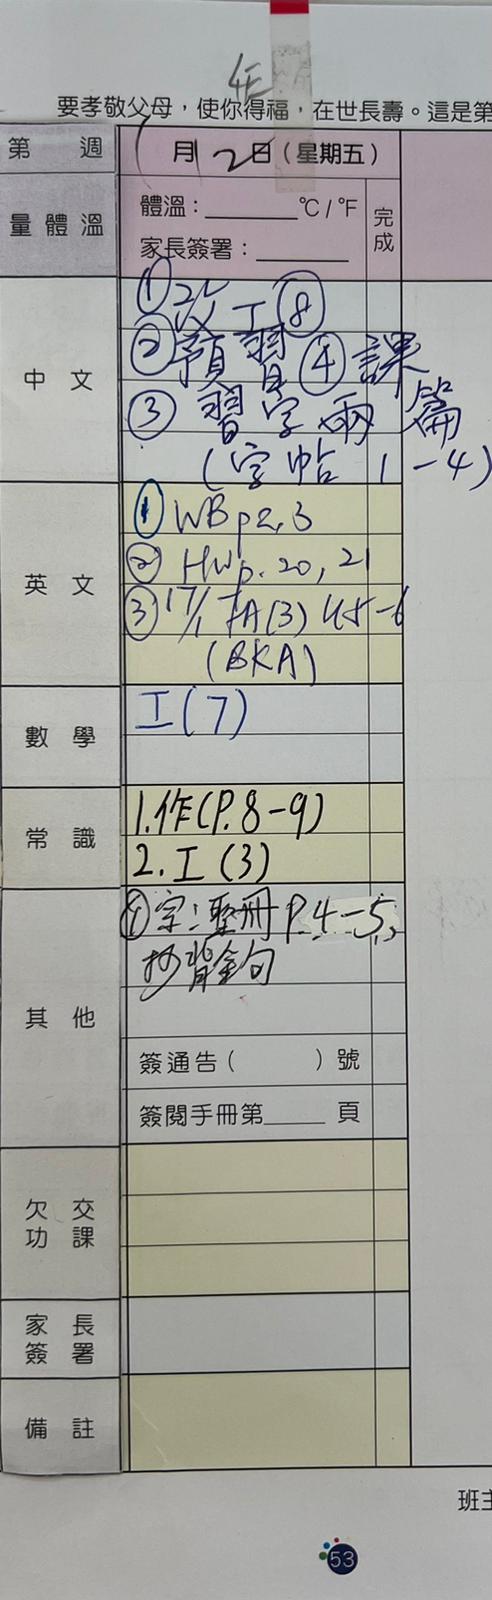 4E
要孝敬父母，使你得福，在世長壽。這是第
第 週 1月12日（星期五）
量體溫 體溫：________℃/℉ 完成
家長簽署：________
中文 ① 改工⑧
② 預習④課
③ 習字兩篇
(字帖 1-4)
英文 ① WB p2,3
② HW p.20, 21
③ 17/1 FA(3) U5-6
(BKA)
數學 工(7)
常識 1.作(P.8-9)
2.工(3)
其他 ① 宗:聖冊 P.4-5,
抄背金句
簽通告（ ）號
簽閱手冊第_____頁
欠交功課
家長簽署
備註
班主
53